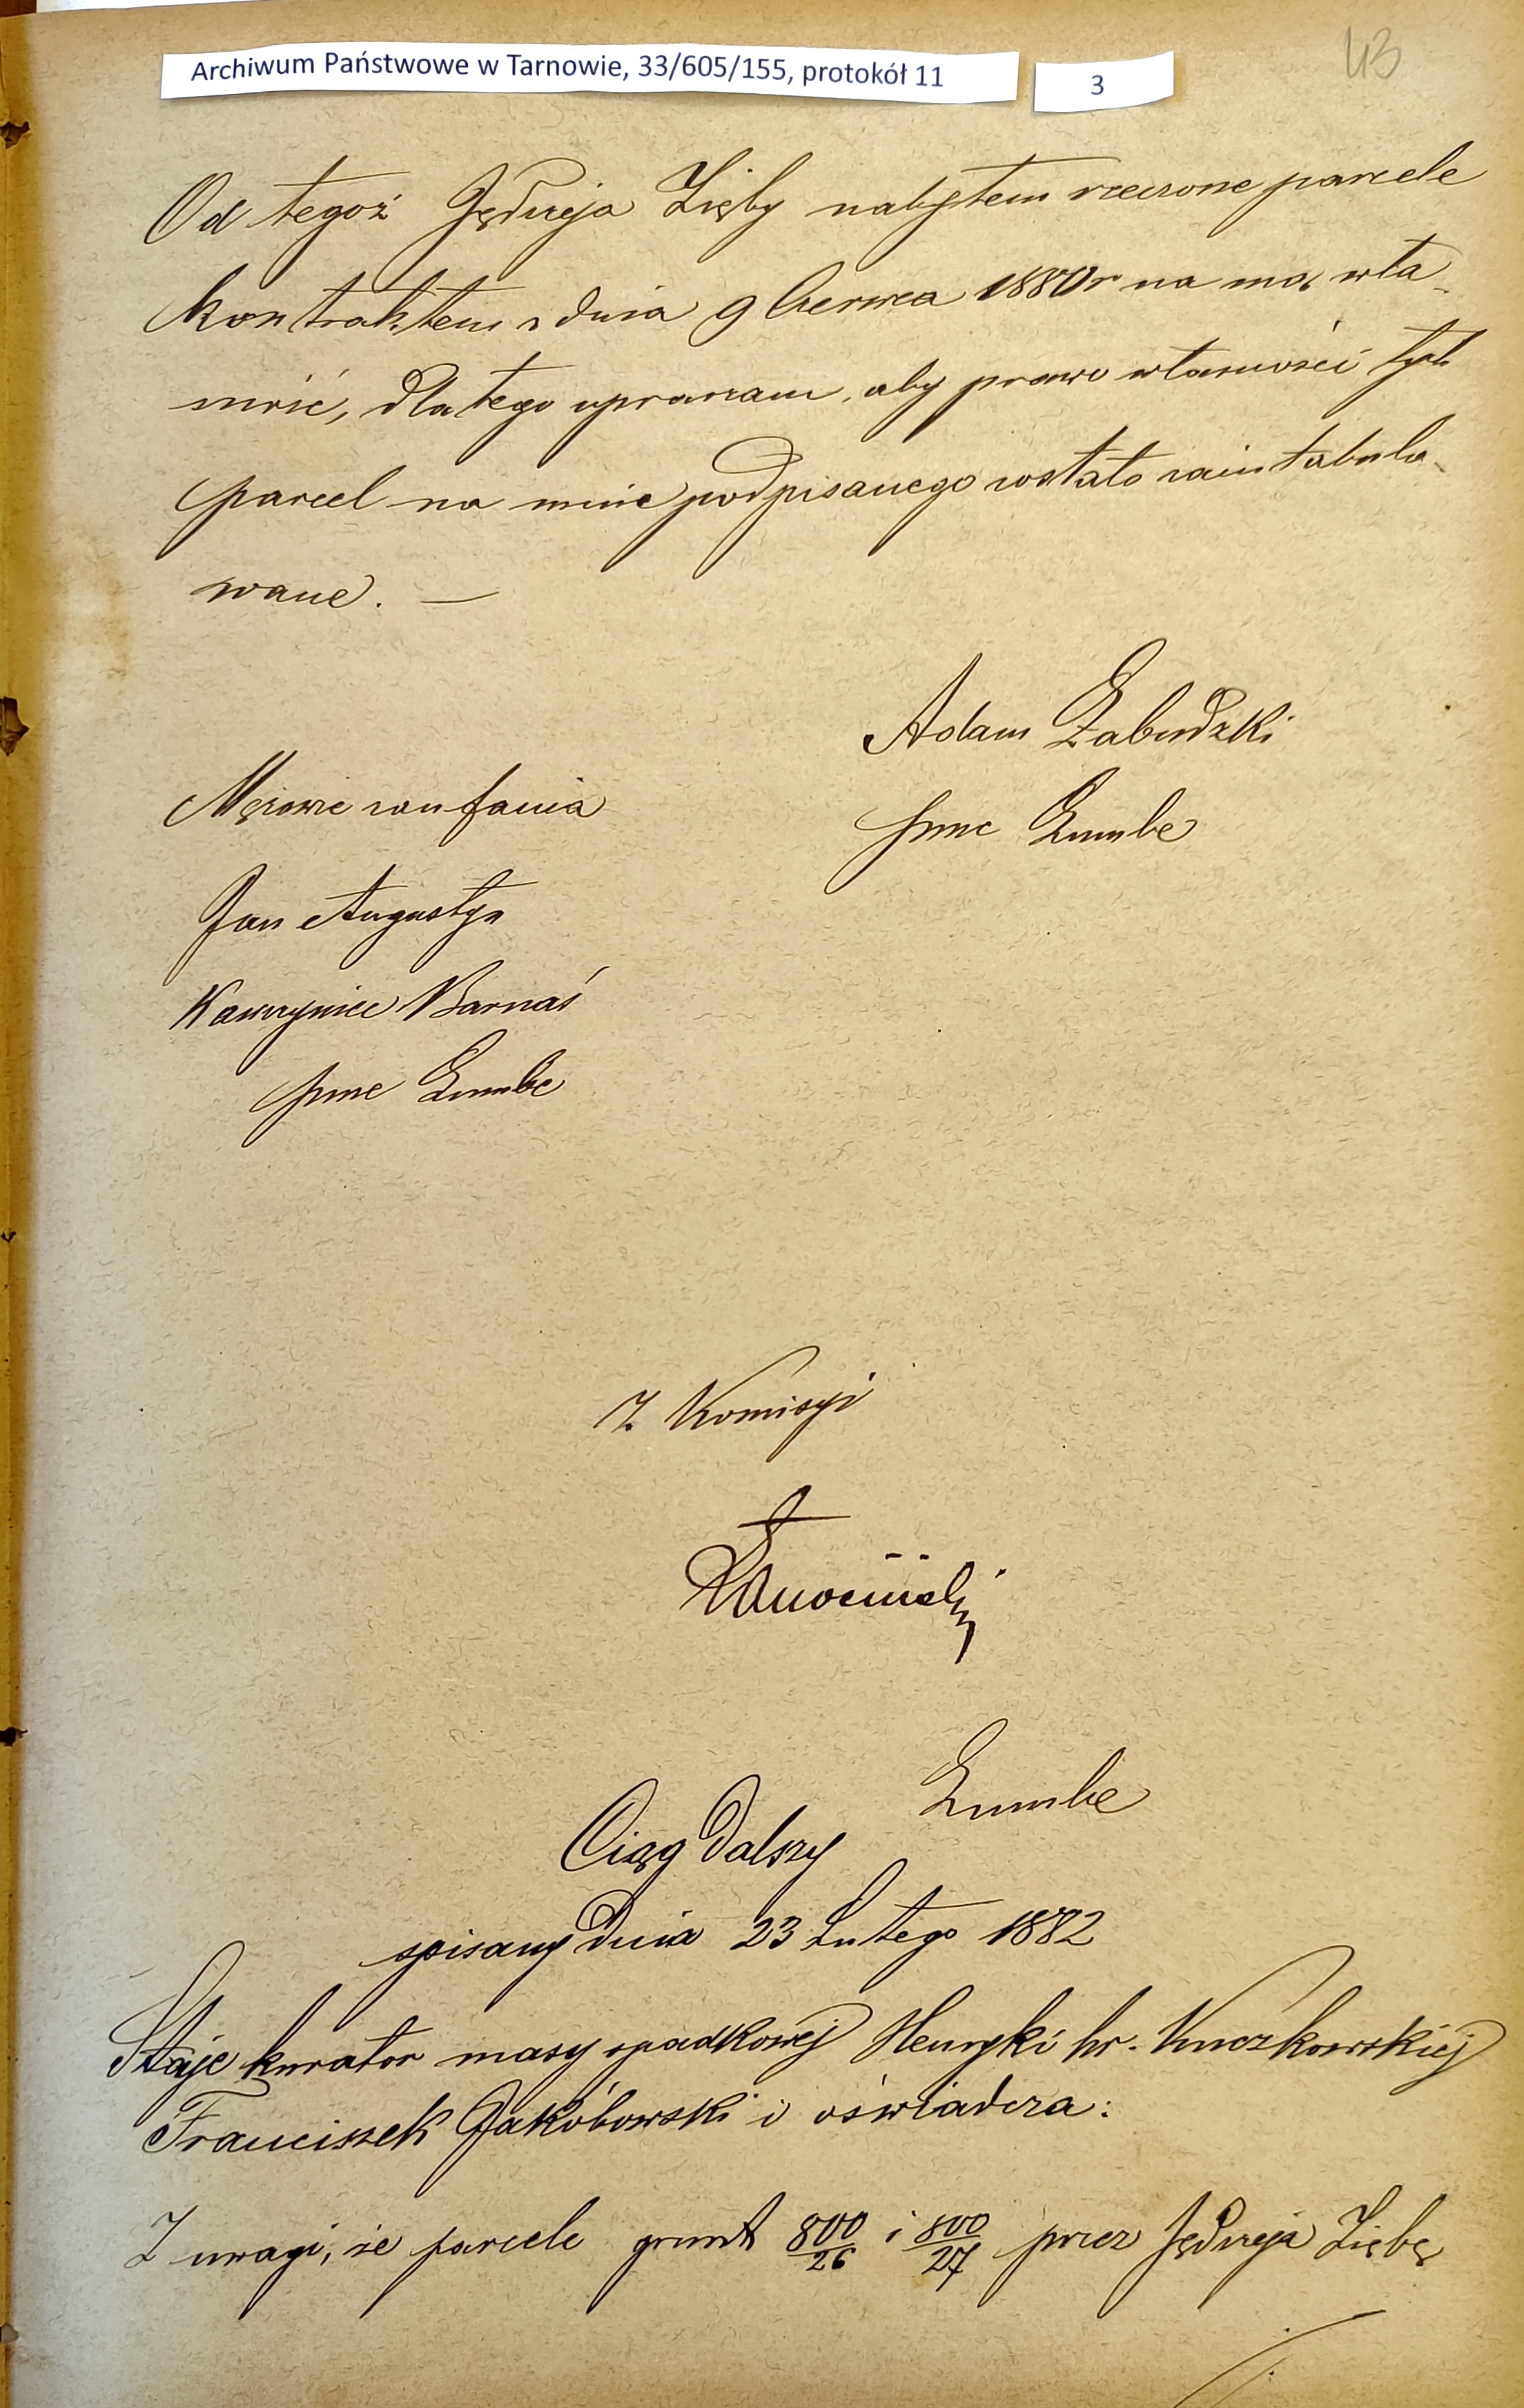 Archiwum Państwowe w Tarnowie, 33/605/155, protokół 11
3
43
Od tegoż Jędrzeja Zięby nabyłem rzeczone parcele
kontraktem z dnia 9 Czerwca 1880r na mą wła-
sność, dlatego upraszam, aby prawo własności tych
parcel na mnie podpisanego zostało zaintabulo-
wane. —
Adam Zabudzki
Mężowie zaufania
Jan Augustyn
Wawrzyniec Barnaś
Z Komisyi
Ciąg dalszy
spisany dnia 23 Lutego 1882
Staje kurator masy spadkowej Henryki hr. Kuczkowskiej
Franciszek Jakóbowski i oświadcza:
Z uwagi, że parcele grunt 800/26 i 800/27 przez Jędrzeja Ziębę